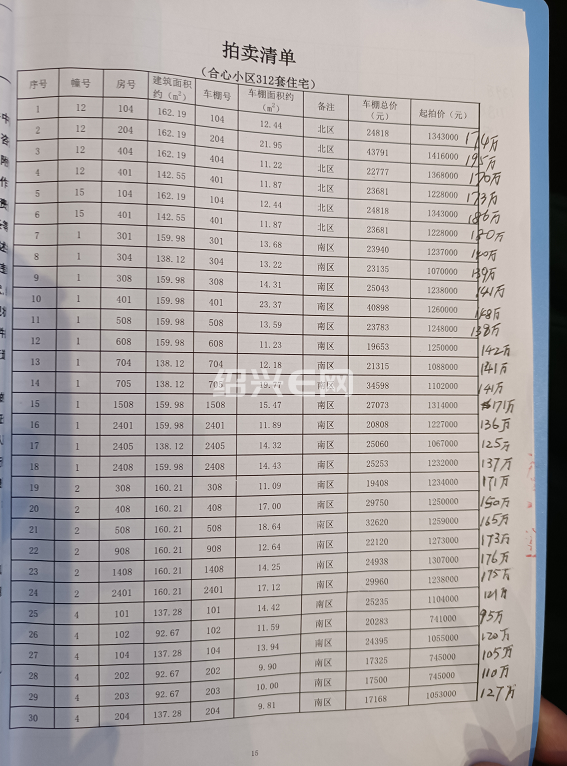 拍卖清单
(合心小区312套住宅)
序号 幢号 房号 建筑面积约(m²) 车棚号 车棚面积约(m²) 备注 车棚总价(元) 起拍价(元)
1 12 104 162.19 104 12.44 北区 24818 1343000 174万
2 12 204 162.19 204 21.95 北区 43791 1416000 195万
3 12 404 162.19 404 11.22 北区 22777 1368000 170万
4 12 401 142.55 401 11.87 北区 23681 1228000 173万
5 15 104 162.19 104 12.44 北区 24818 1343000 186万
6 15 401 142.55 401 11.87 北区 23681 1228000 180万
7 1 301 159.98 301 13.68 南区 23940 1237000 140万
8 1 304 138.12 304 13.22 南区 23135 1070000 139万
9 1 308 159.98 308 14.31 南区 25043 1238000 141万
10 1 401 159.98 401 23.37 南区 40898 1260000 148万
11 1 508 159.98 508 13.59 南区 23783 1248000 138万
12 1 608 159.98 608 11.23 南区 19653 1250000 142万
13 1 704 138.12 704 12.18 南区 21315 1088000 141万
14 1 705 138.12 705 19.77 南区 34598 1102000 141万
15 1 1508 159.98 1508 15.47 南区 27073 1314000 171万
16 1 2401 159.98 2401 11.89 南区 20808 1227000 136万
17 1 2405 138.12 2405 14.32 南区 25060 1067000 125万
18 1 2408 159.98 2408 14.43 南区 25253 1232000 137万
19 2 308 160.21 308 11.09 南区 19408 1234000 171万
20 2 408 160.21 408 17.00 南区 29750 1250000 150万
21 2 508 160.21 508 18.64 南区 32620 1259000 165万
22 2 908 160.21 908 12.64 南区 22120 1273000 173万
23 2 1408 160.21 1408 14.25 南区 24938 1307000 176万
24 2 2401 160.21 2401 17.12 南区 29960 1238000 175万
25 4 101 137.28 101 14.42 南区 25235 1104000 121万
26 4 102 92.67 102 11.59 南区 20283 741000 95万
27 4 104 137.28 104 13.94 南区 24395 1055000 120万
28 4 202 92.67 202 9.90 南区 17325 745000 105万
29 4 203 92.67 203 10.00 南区 17500 745000 110万
30 4 204 137.28 204 9.81 南区 17168 1053000 127万
绍兴E网
15